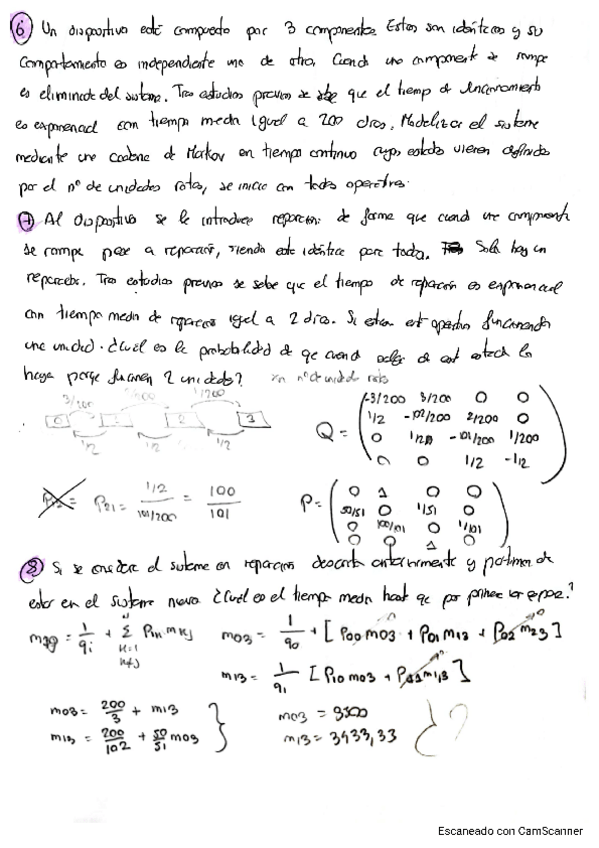 6 Un dispositivo está compuesto por 3 componentes. Estos son idénticos y su
comportamiento es independiente uno de otro. Cuando un componente se rompe
es eliminado del sistema. Tras estudios previos se sabe que el tiempo de funcionamiento
es exponencial con tiempo medio igual a 200 días. Modelizar el sistema
mediante una cadena de Markov en tiempo continuo cuyos estados vienen definidos
por el nº de unidades rotas, se inicia con todas operativas.
7 Al dispositivo se le introduce reparación de forma que cuando un componente
se rompe pasa a reparación, siendo esta idéntica para todas. Solo hay un
reparador. Tras estudios previos se sabe que el tiempo de reparación es exponencial
con tiempo medio de reparación igual a 2 días. Si
una unidad. ¿Cuál es la probabilidad de que cuando de este estado lo
haga porque funcionen 2 unidades? Xn nº de unidades rotas
3/200 1/200
0 1 2 3
1/2 1/2 1/2
Q = ( -3/200 3/200 0 0
1/2 -102/200 2/200 0
0 1/2 -101/200 1/200
0 0 1/2 -1/2 )
P21 = 1/2 / 101/200 = 100/101
P = ( 0 1 0 0
50/51 0 1/51 0
0 100/101 0 1/101
0 0 1 0 )
8 Si se considera el sistema con reparación descrito anteriormente y partimos de
estar en el sistema nuevo ¿Cuál es el tiempo medio hasta que por primera vez?
= 1/qi + Σ Pik mkj m03 = 1/q0 + [P00 m03 + P01 m13 + P02 m23]
k=1
k≠j
m13 = 1/q1 [P10 m03 + ]
m03 = 200/3 + m13
m13 = 200/102 + 50/51 m03
m03 = 3500
m13 = 3433,33
?
Escaneado con CamScanner